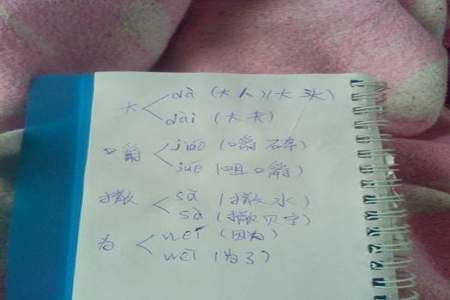 大 dà (大人)(大头)
dài (大夫)
嚼 jiáo (嚼碎)
jué (咀嚼)
撒 sǎ (撒水)
sà (撒贝宁)
为 wéi (因为)
wèi (为了)